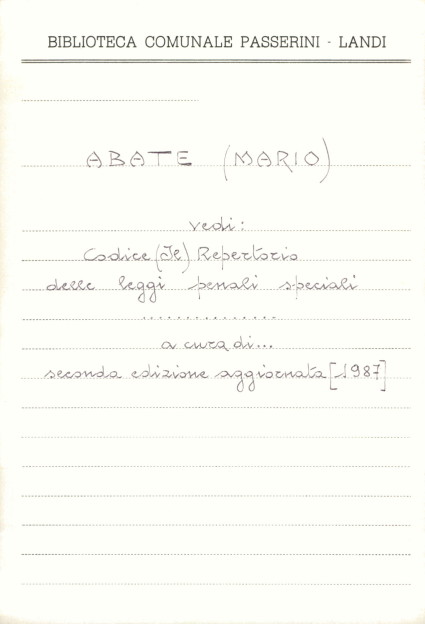 BIBLIOTECA COMUNALE PASSERINI - LANDI
ABATE (MARIO)
vedi:
Codice (Il) Repertorio
delle leggi penali speciali
...............
a cura di...
seconda edizione aggiornata [1987]